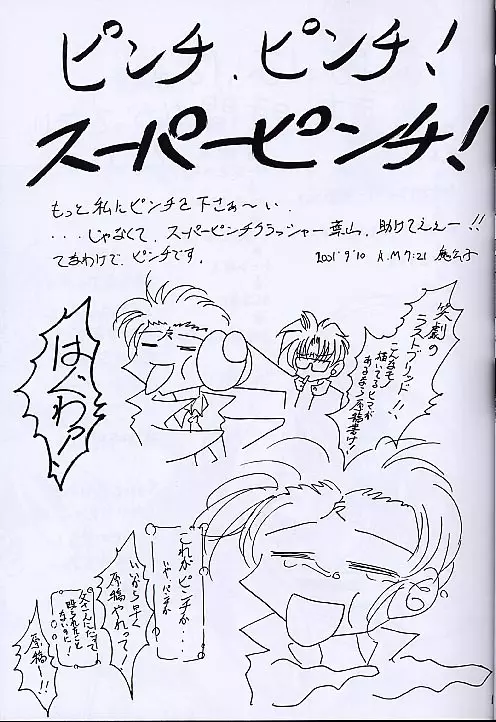 ピンチ、ピンチ!
スーパーピンチ!
もっと私にピンチを下さぁ〜い.
...じゃなくて、スーパーピンチクラッシャー葉山、助けてええー!!
てなわけで、ピンチです。
2001 9/10 A.M 7:21
笑劇の
ラストブリッド!!
こんなモノ
描いてるヒマが
あるなら原稿書け!!
はぐわァッ
これがピンチか...
いや、パンチか
いいから早く
原稿やれって!
父さんにだって
殴られたこと
ないのに!
原稿ー!!